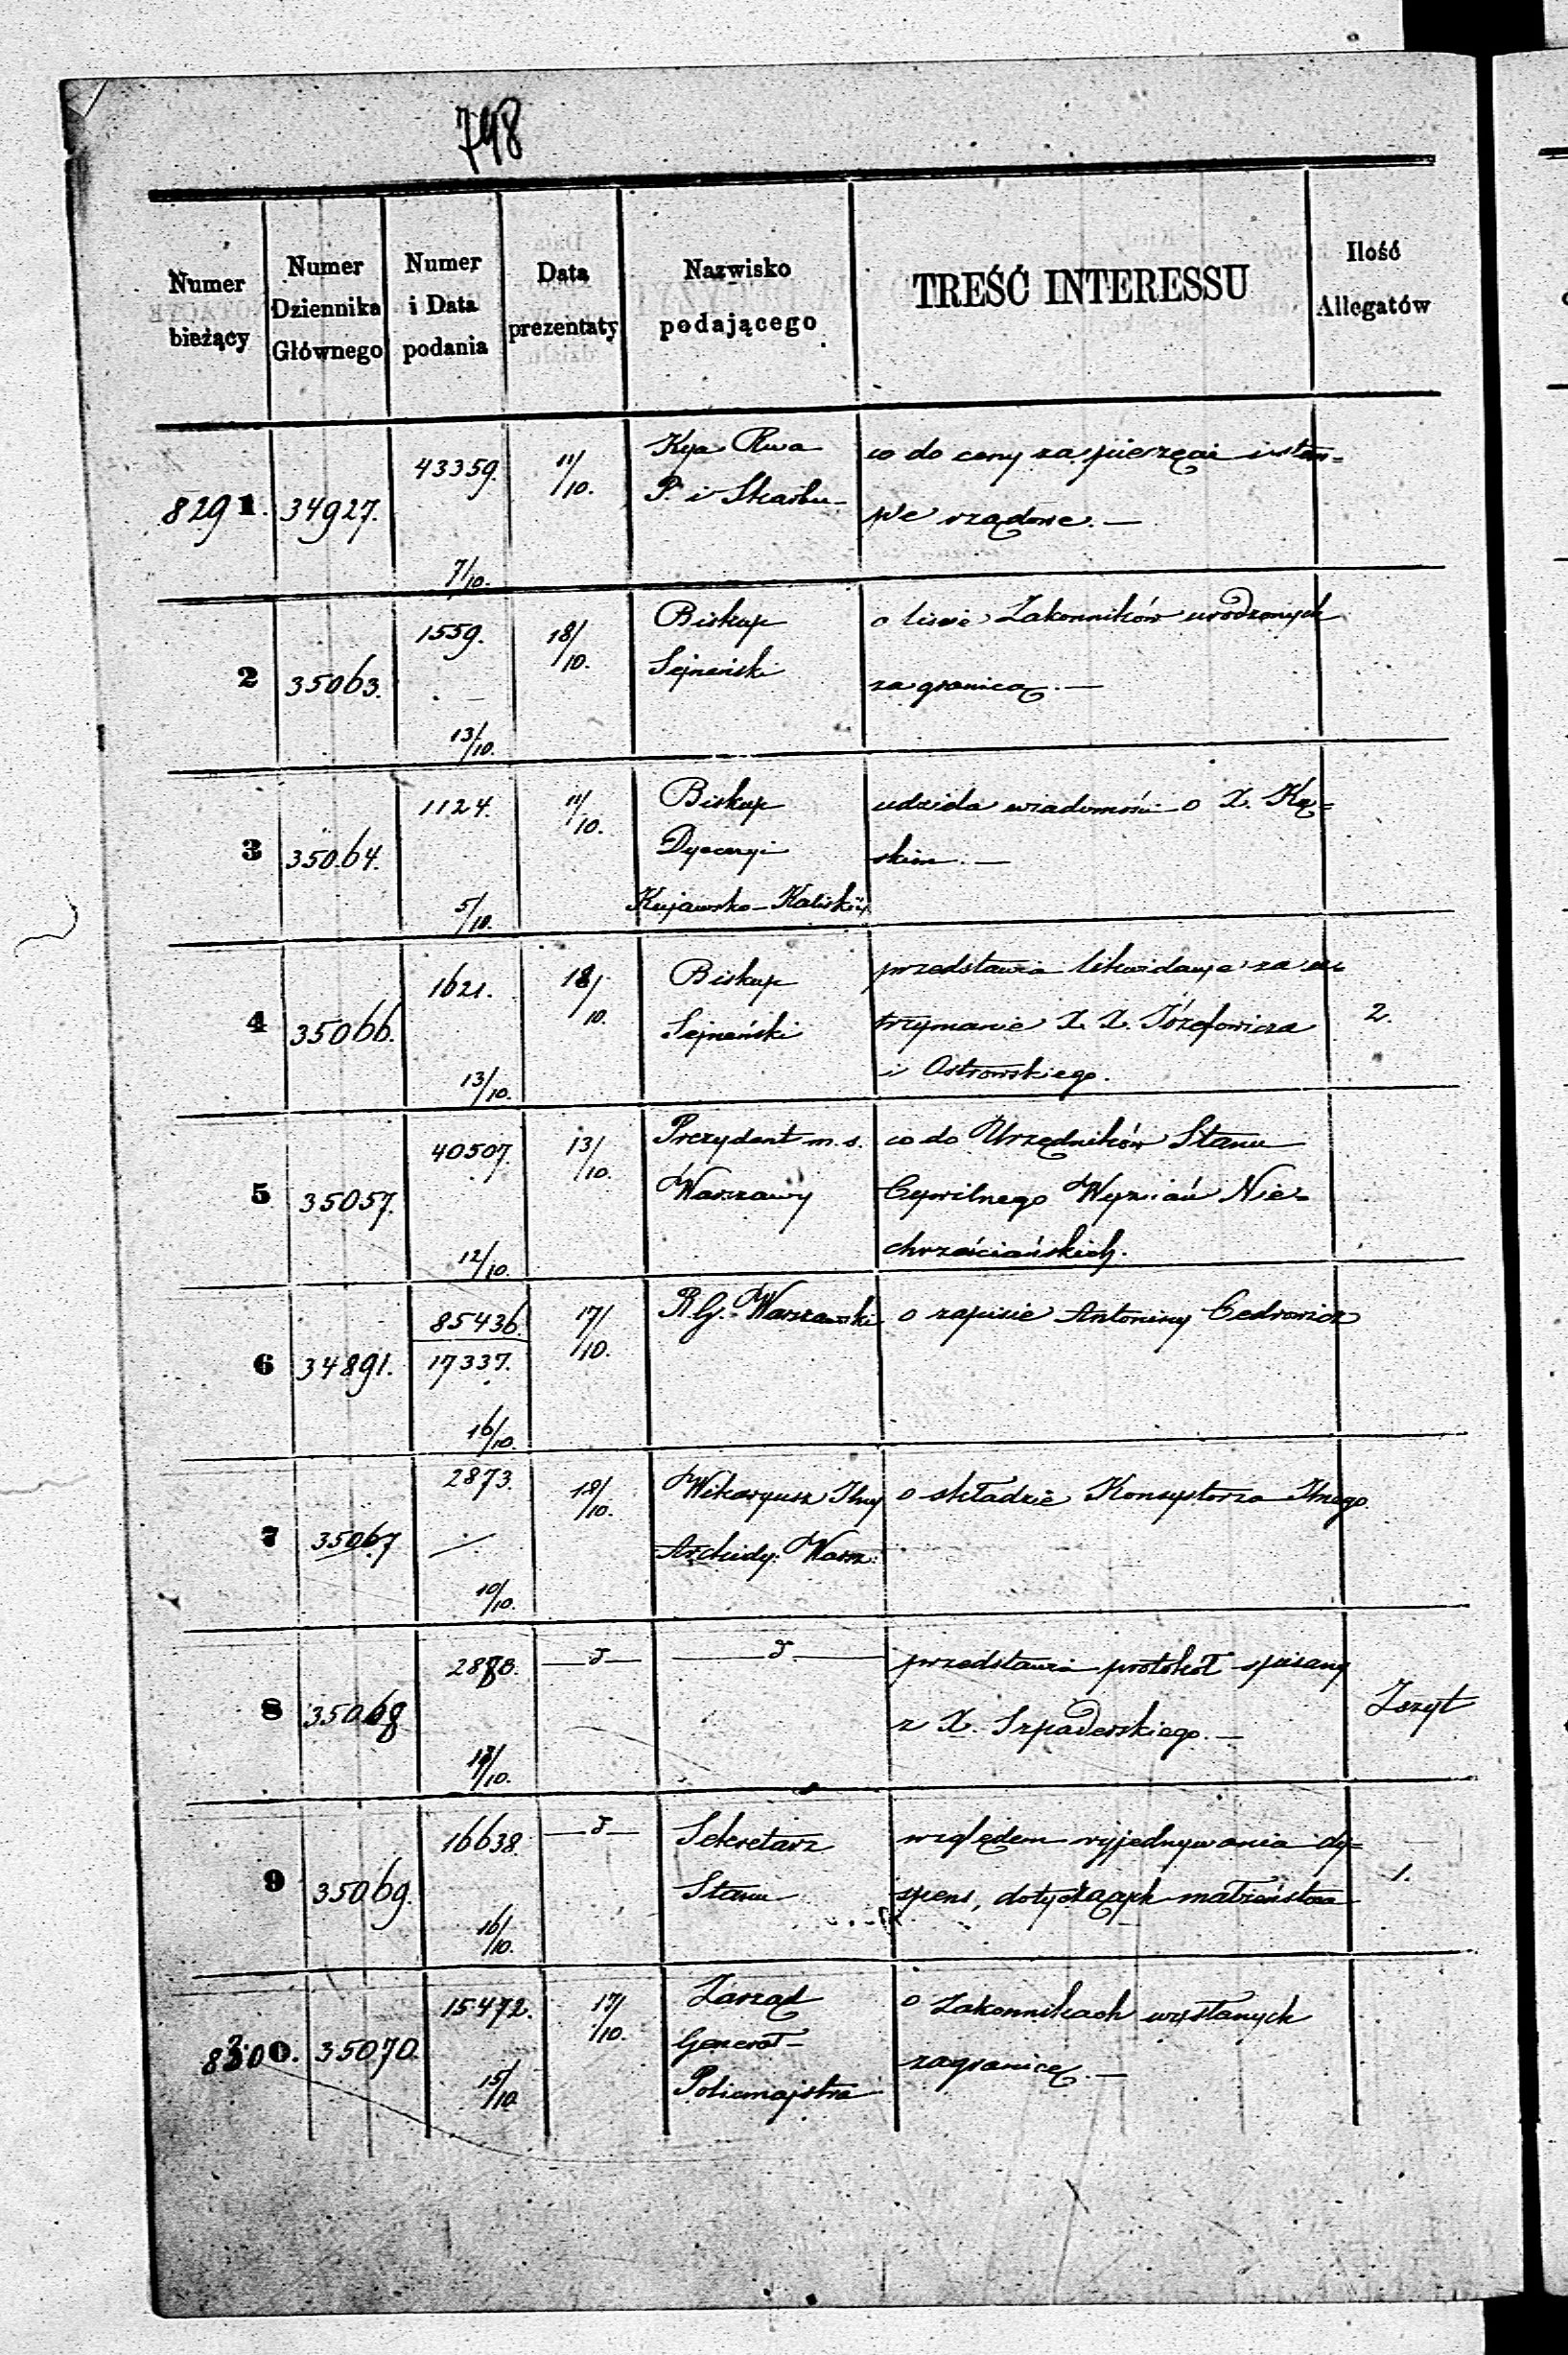 748
Numer bieżący
Numer Dziennika Głównego
Numer i Data podania
Data prezentaty
Nazwisko podającego
TREŚĆ INTERESSU
Ilość Allegatów
8291. 34927. 43359. 7/10. 11/10.
Kya Rwa
P. i Skarbu
co do ceny za pieczęcie i stem=
ple rządowe. —
2 35063. 1559. 13/10. 18/10.
Biskup
Sejneński
o liście Zakonników urodzonych
za granicą. —
3 35064. 1124. 5/10. 11/10.
Biskup
Dyecezyi
Kujawsko-Kaliskiéj
udziela wiadomości o X. Kę=
skim. —
4 35066. 1621. 13/10. 18/10.
Biskup
Sejneński
przedstawia likwidacye za u=
trzymanie X. X. Józefowicza
i Ostrowskiego.
2.
5 35057. 40507. 12/10. 13/10.
Prezydent m. s.
Warszawy
co do Urzędników Stanu
Cywilnego Wyznań Nie=
chrześciańskich.
6 34891. 85436. 17337. 16/10. 17/10.
R. G. Warszawski
o zapisie Antoniny Cedrowicz
7 35067 2873. 10/10. 18/10.
Wikaryusz Jlny
Archidy: Warsz:
o składzie Konsystorza Jlnego
8 35068 2880. /10. — d —
— d —
przedstawia protokół spisany
z X. Szpaderskiego. —
Zszyt
9 35069. 16638. 16/10. — d —
Sekretarz
Stanu
względem wyjednywania dy=
spens, dotyczących małżeństwa
1.
8300. 35070. 15472. 15/10. 17/10.
Zarząd
Generał-
Policmajstra
o Zakonnikach wysłanych
zagranicę. —